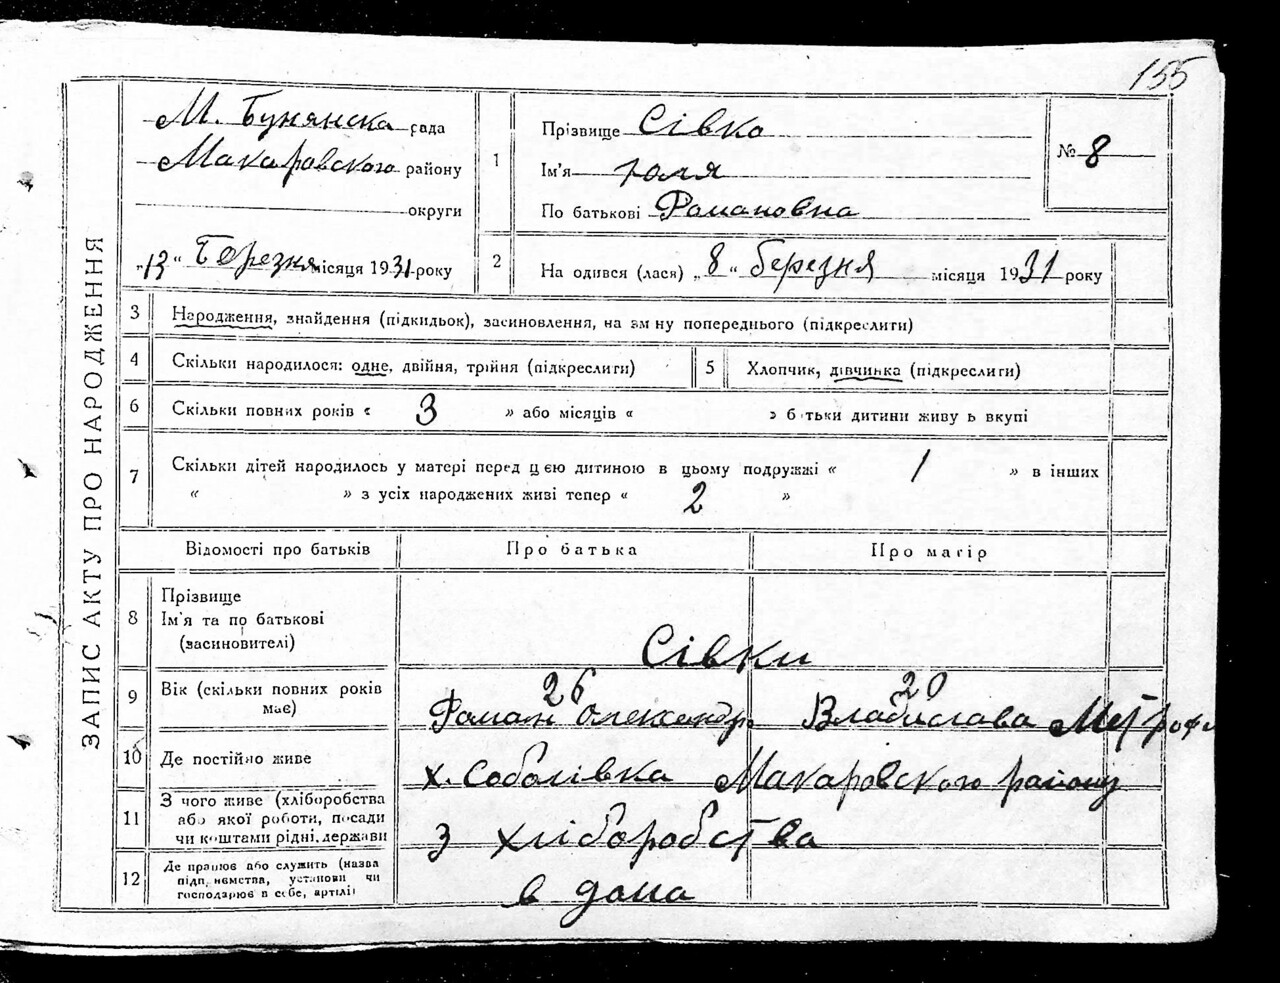 155
ЗАПИС АКТУ ПРО НАРОДЖЕННЯ
М. Бунянска рада
Макаровского району
округи
"13" Березня місяця 1931 року
1
Прізвище Сівко
Ім'я Юля
По батькові Романовна
№ 8
2 На одився (лася) "8" березня місяця 1931 року
3 Народження, знайдення (підкидьок), засиновлення, на зміну попереднього (підкреслити)
4 Скільки народилося: одне, двійня, трійня (підкреслити)
5 Хлопчик, дівчинка (підкреслити)
6 Скільки повних років « 3 » або місяців « » батьки дитини живуть вкупі
7 Скільки дітей народилось у матері перед цією дитиною в цьому подружжі « 1 » в інших
« » з усіх народжених живі тепер « 2 »
Відомості про батьків Про батька Про матір
8 Прізвище
Ім'я та по батькові
(засиновителі)
Сівки
9 Вік (скільки повних років
має)
26 20
Роман Олександр. Владислава Метрофа
10 Де постійно живе
х. Соболівка Макаровского району
11 З чого живе (хліборобства
або якої роботи, посади
чи коштами рідні, держави
З хліборобства
12 Де працює або служить (назва
підприємства, установи чи
господарює в себе, артілі)
в дома